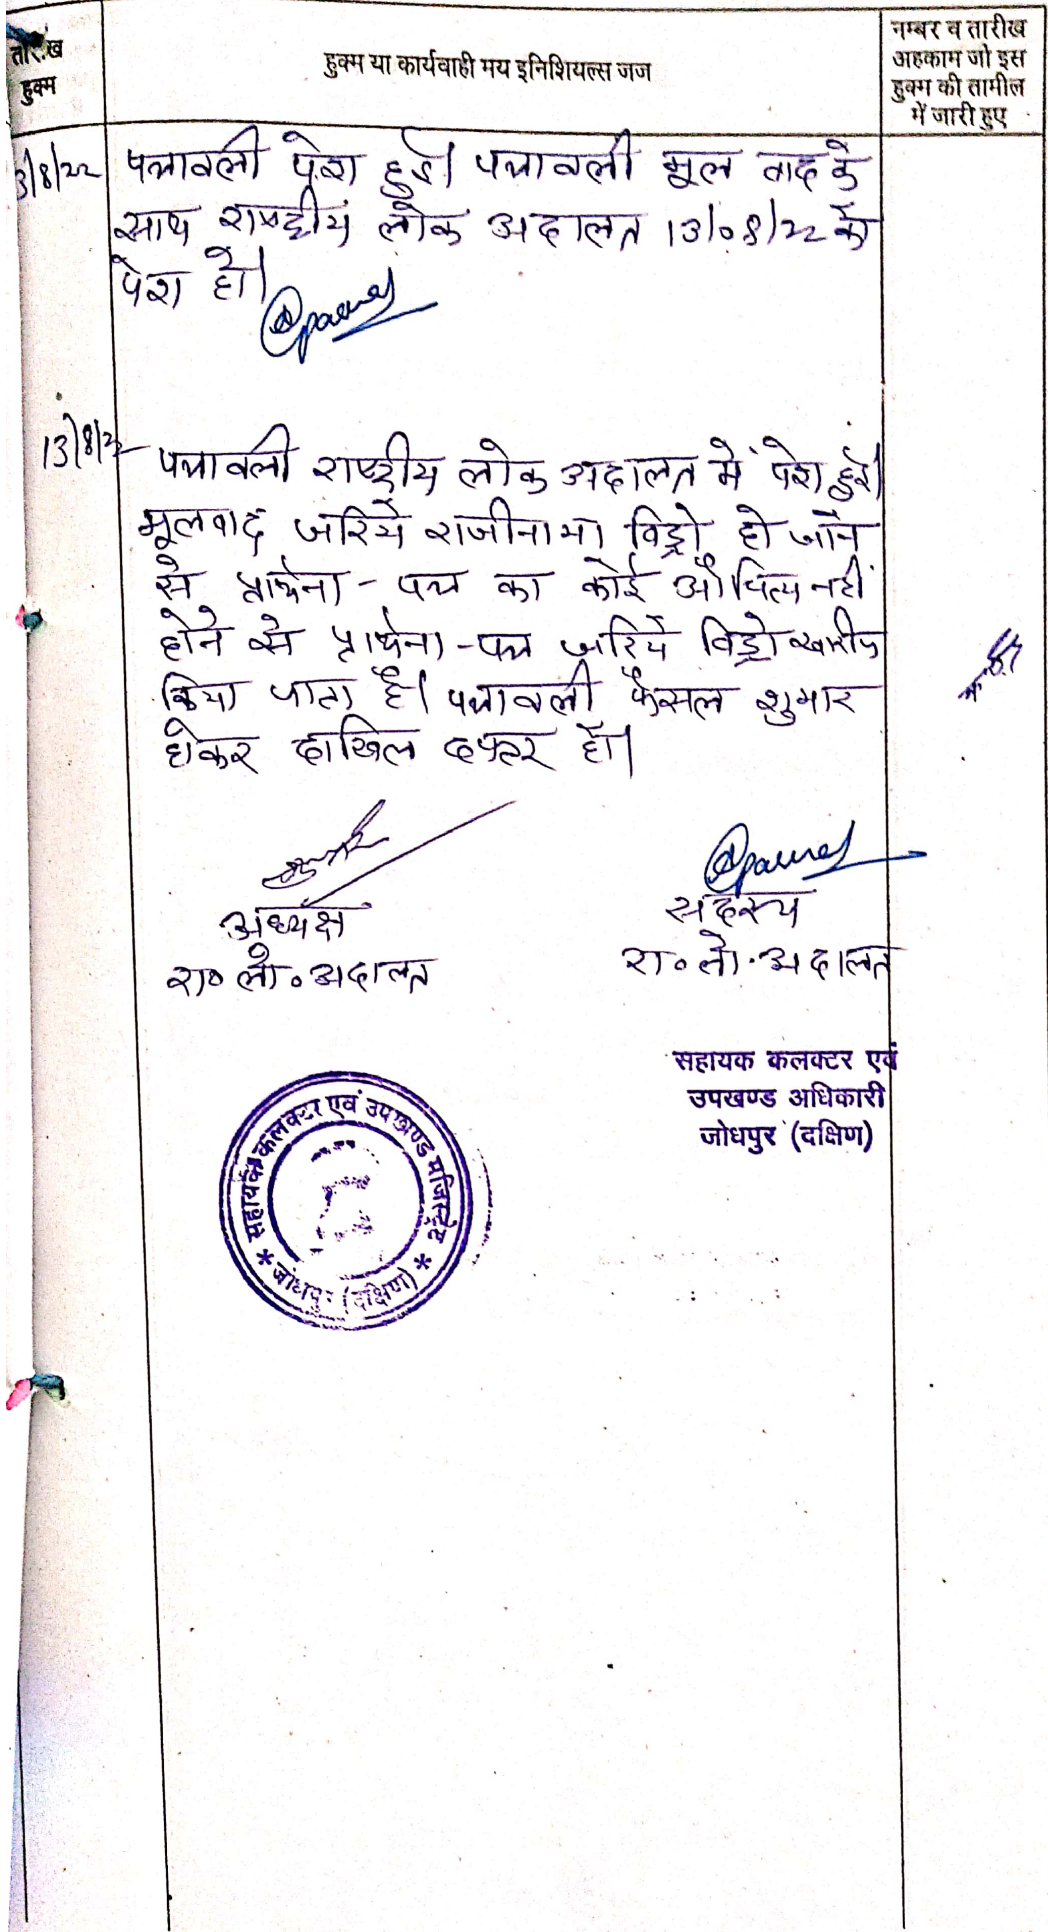 तारीख
हुक्म
हुक्म या कार्यवाही मय इनिशियल्स जज
नम्बर व तारीख
अहकाम जो इस
हुक्म की तामील
में जारी हुए
3/8/22 पत्रावली पेश हुई। पत्रावली मूल वाद के
साथ राष्ट्रीय लोक अदालत 13/08/22 को
पेश हो।
13/8/22 पत्रावली राष्ट्रीय लोक अदालत में पेश हुई।
मूलवाद जरिये राजीनामा विड्रो हो जाने
से प्रार्थना-पत्र का कोई औचित्य नहीं
होने से प्रार्थना-पत्र जरिये विड्रो खारीज
किया जाता है। पत्रावली फैसल शुमार
होकर दाखिल दफ्तर हो।
अध्यक्ष
रा० लो० अदालत
सदस्य
रा० लो. अदालत
सहायक कलक्टर एवं
उपखण्ड अधिकारी
जोधपुर (दक्षिण)
सहायक कलक्टर एवं उपखण्ड मजिस्ट्रेट
* जोधपुर (दक्षिण) *